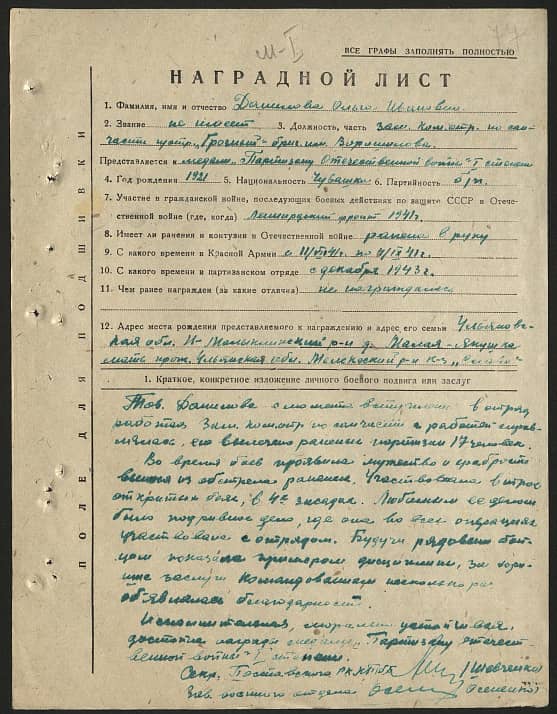 77
М-I
ВСЕ ГРАФЫ ЗАПОЛНЯТЬ ПОЛНОСТЬЮ
НАГРАДНОЙ ЛИСТ
ПОЛЕ ДЛЯ ПОДШИВКИ
1. Фамилия, имя и отчество Данилова Ольга
2. Звание не имеет 3. Должность, часть зам. ком. отр. по сан-
части отр. "Грозный" бриг. им. Ворошилова
Представляется к медали "Партизану Отечественной войны" I степени
4. Год рождения 1921 5. Национальность Чувашка 6. Партийность б/п
7. Участие в гражданской войне, последующих боевых действиях по защите СССР и Отече-
ственной войне (где, когда) фронт 1941г.
8. Имеет ли ранения и контузии в Отечественной войне ранена в руку
9. С какого времени в Красной Армии с 41г. по 41г.
10. С какого времени в партизанском отряде с декабря 1943г.
11. Чем ранее награжден (за какие отличия) не награждалась
12. Адрес места рождения представляемого к награждению и адрес его семьи Ульяновс-
кая обл. Н-Малыклинский р-н д. Малая-Якушка
мать прож. обл. р-н к-з
1. Краткое, конкретное изложение личного боевого подвига или заслуг
Тов. Данилова с момента вступления в отряд
работая зам. ком. отр. по санчасти с работой справ-
лялась, ею вылечено раненых партизан 17 человек.
Во время боев проявила мужество и храбрость
вынося из обстрела раненых. Участвовала в трех
открытых боях, в 4х засадах. Любимым ее делом
было подрывное дело, где она во всех операциях
участвовала с отрядом. Будучи рядовым бой-
цом показала примером дисциплины, за хоро-
шие заслуги командованием несколько раз
объявлялась благодарность.
Исполнительная, морально устойчивая,
достойна награды медали "Партизану отечест-
венной войны" I степени.
Секр. Поставского РК КП(б)Б /Шевченко/
Зав. военного отдела